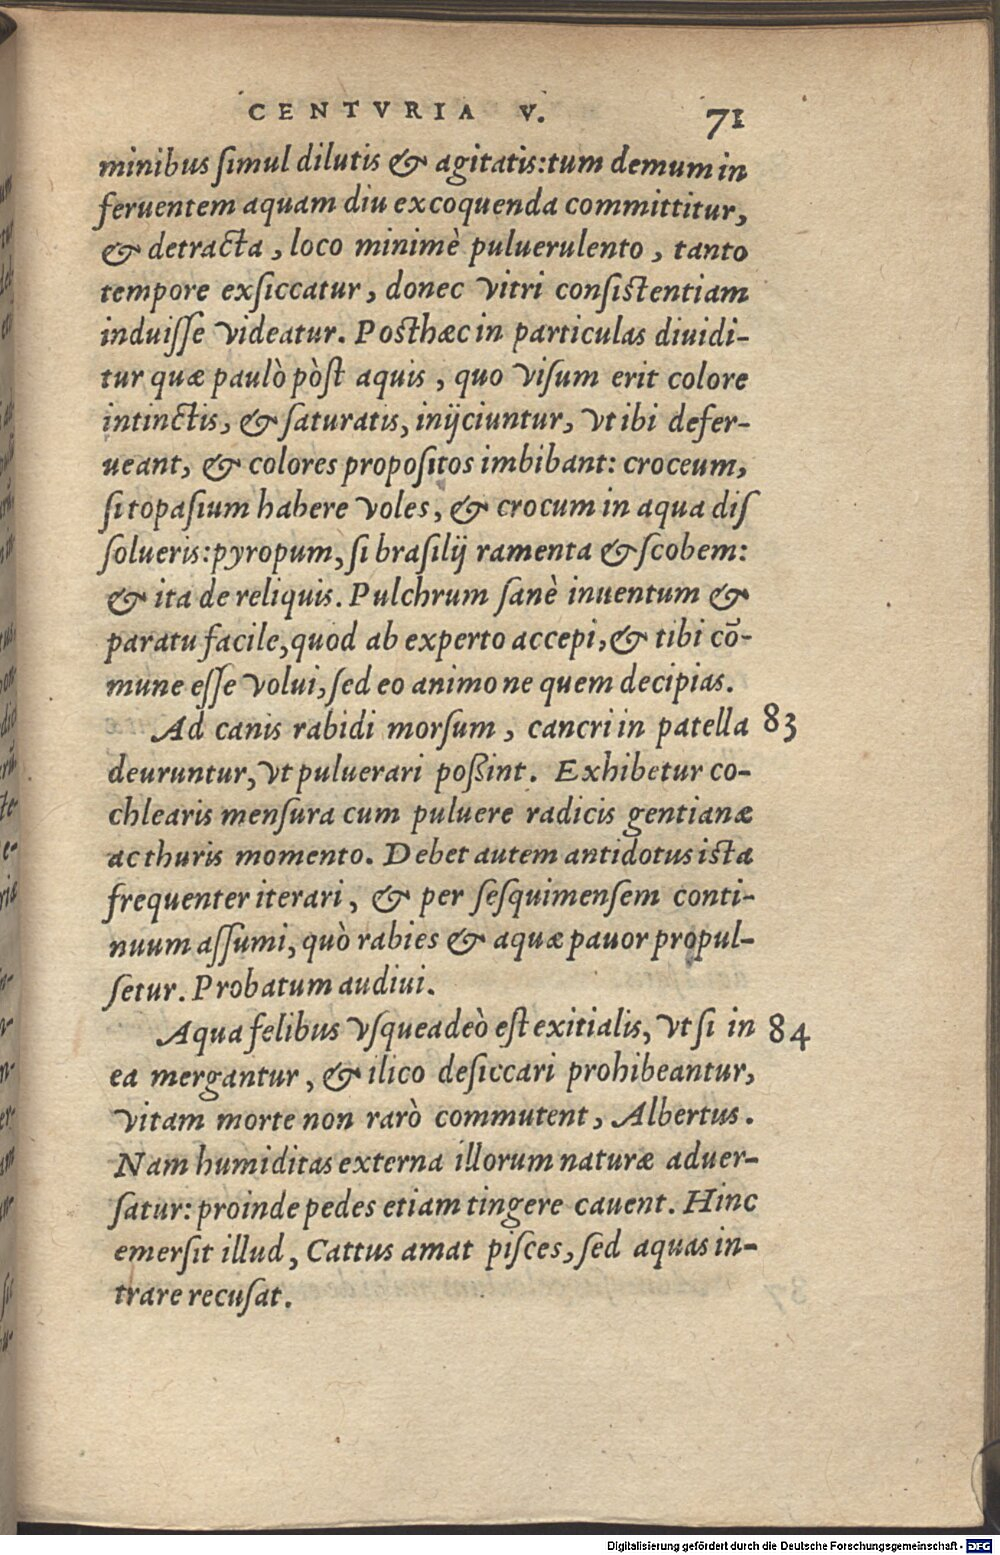 CENTVRIA V. 71
minibus ſimul dilutis & agitatis: tum demum in
feruentem aquam diu excoquenda committitur,
& detracta, loco minimè puluerulento, tanto
tempore exſiccatur, donec vitri conſistentiam
induiſſe videatur. Posthæc in particulas diuidi-
tur quæ paulò pòst aquis, quo viſum erit colore
intinctis, & ſaturatis, inijciuntur, vt ibi defer-
ueant, & colores propoſitos imbibant: croceum,
ſi topaſium habere voles, & crocum in aqua diſ
ſolueris: pyropum, ſi braſilij ramenta & ſcobem:
& ita de reliquis. Pulchrum ſanè inuentum &
paratu facile, quod ab experto accepi, & tibi cō-
mune eſſe volui, ſed eo animo ne quem decipias.
Ad canis rabidi morſum, cancri in patella 83
deuruntur, vt puluerari poßint. Exhibetur co-
chlearis menſura cum puluere radicis gentianæ
ac thuris momento. Debet autem antidotus ista
frequenter iterari, & per ſeſquimenſem conti-
nuum aſſumi, quò rabies & aquæ pauor propul-
ſetur. Probatum audiui.
Aqua felibus vſqueadeò eſt exitialis, vt ſi in 84
ea mergantur, & ilico deſiccari prohibeantur,
vitam morte non rarò commutent, Albertus.
Nam humiditas externa illorum naturæ aduer-
ſatur: proinde pedes etiam tingere cauent. Hinc
emerſit illud, Cattus amat piſces, ſed aquas in-
trare recuſat.
Digitalisierung gefördert durch die Deutsche Forschungsgemeinschaft - DFG